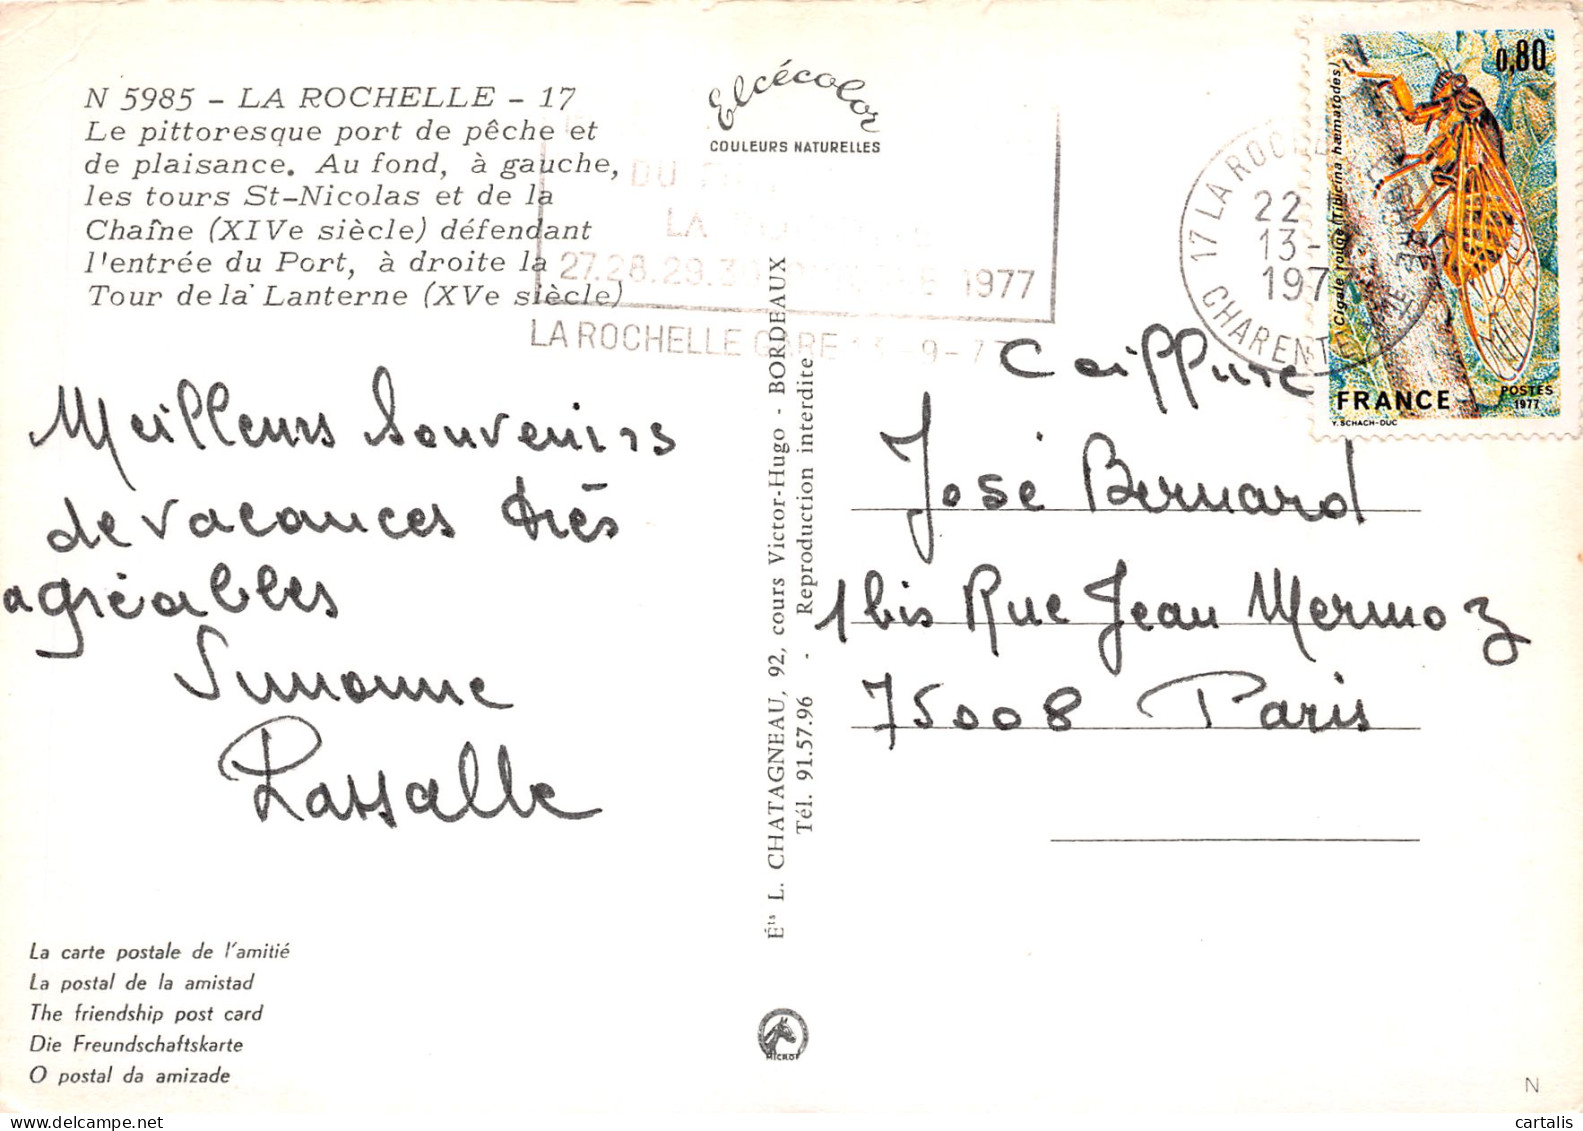 N 5985 - LA ROCHELLE - 17
Le pittoresque port de pêche et
de plaisance. Au fond, à gauche,
les tours St-Nicolas et de la
Chaîne (XIVe siècle) défendant
l'entrée du Port, à droite la
Tour de la Lanterne (XVe siècle)
Elcécolor
COULEURS NATURELLES
DU
LA
27.28.29.30 1977
LA ROCHELLE GARE 13-9-77
17 LA ROCHELLE GARE
22
13-
197
CHARENTE MME
0,80
Cigale rouge (Tibicina hæmatodes)
FRANCE
POSTES
1977
Y. SCHACH-DUC
Meilleurs souvenirs
de vacances très
agréables
Simonne
Lassalle
Coiffure
José Bernard
1 bis Rue Jean Mermoz
75008 Paris
Éts L. CHATAGNEAU, 92, cours Victor-Hugo - BORDEAUX
Tél. 91.57.96 - Reproduction interdite
La carte postale de l'amitié
La postal de la amistad
The friendship post card
Die Freundschaftskarte
O postal da amizade
MICROF
N
cartalis